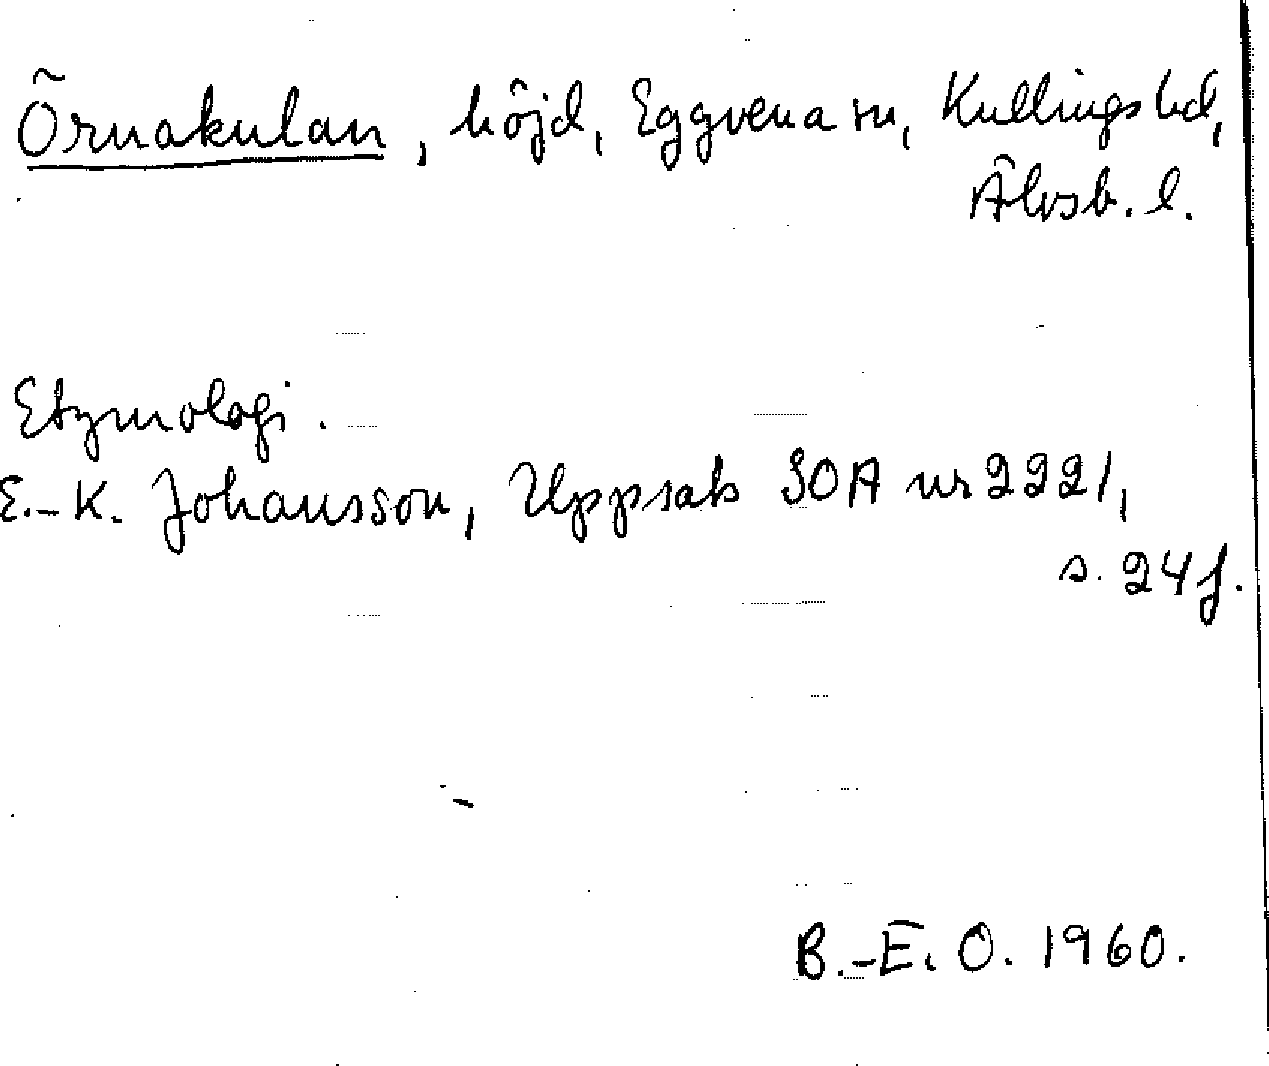 Örnakulan, höjd, Eggvena sn, Kullings hd,
Älvsb. l.
Etymologi.
E.-K. Johansson, Uppsats SOA nr 2221,
s. 24 f.
B.-E. O. 1960.